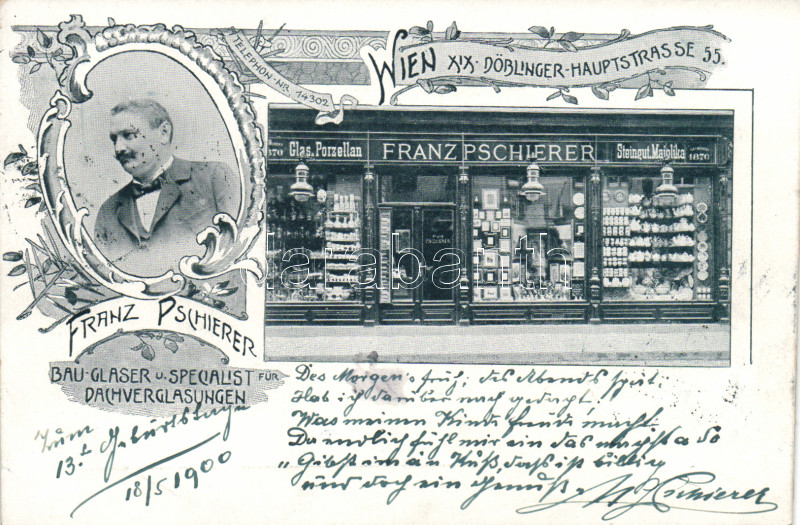 TELEPHON-NR. 14302
WIEN XIX. DÖBLINGER-HAUPTSTRASSE 55.
1870 Glas. Porzellan FRANZ PSCHIERER Steingut. Majolika 1870
FRANZ PSCHIERER
BAU-GLASER U. SPECIALIST FÜR
DACHVERGLASUNGEN
Zum
13.t Geburtstage
18/5 1900
Des Morgens früh, des Abends spät
Hab ich darüber nach gedacht,
Was meinem Kinde freude macht.
Da endlich fühl mir ein das macht a So
„Gibst im an Kuß, das ist billig
und doch ein Genuß"
Pschierer
darabanth